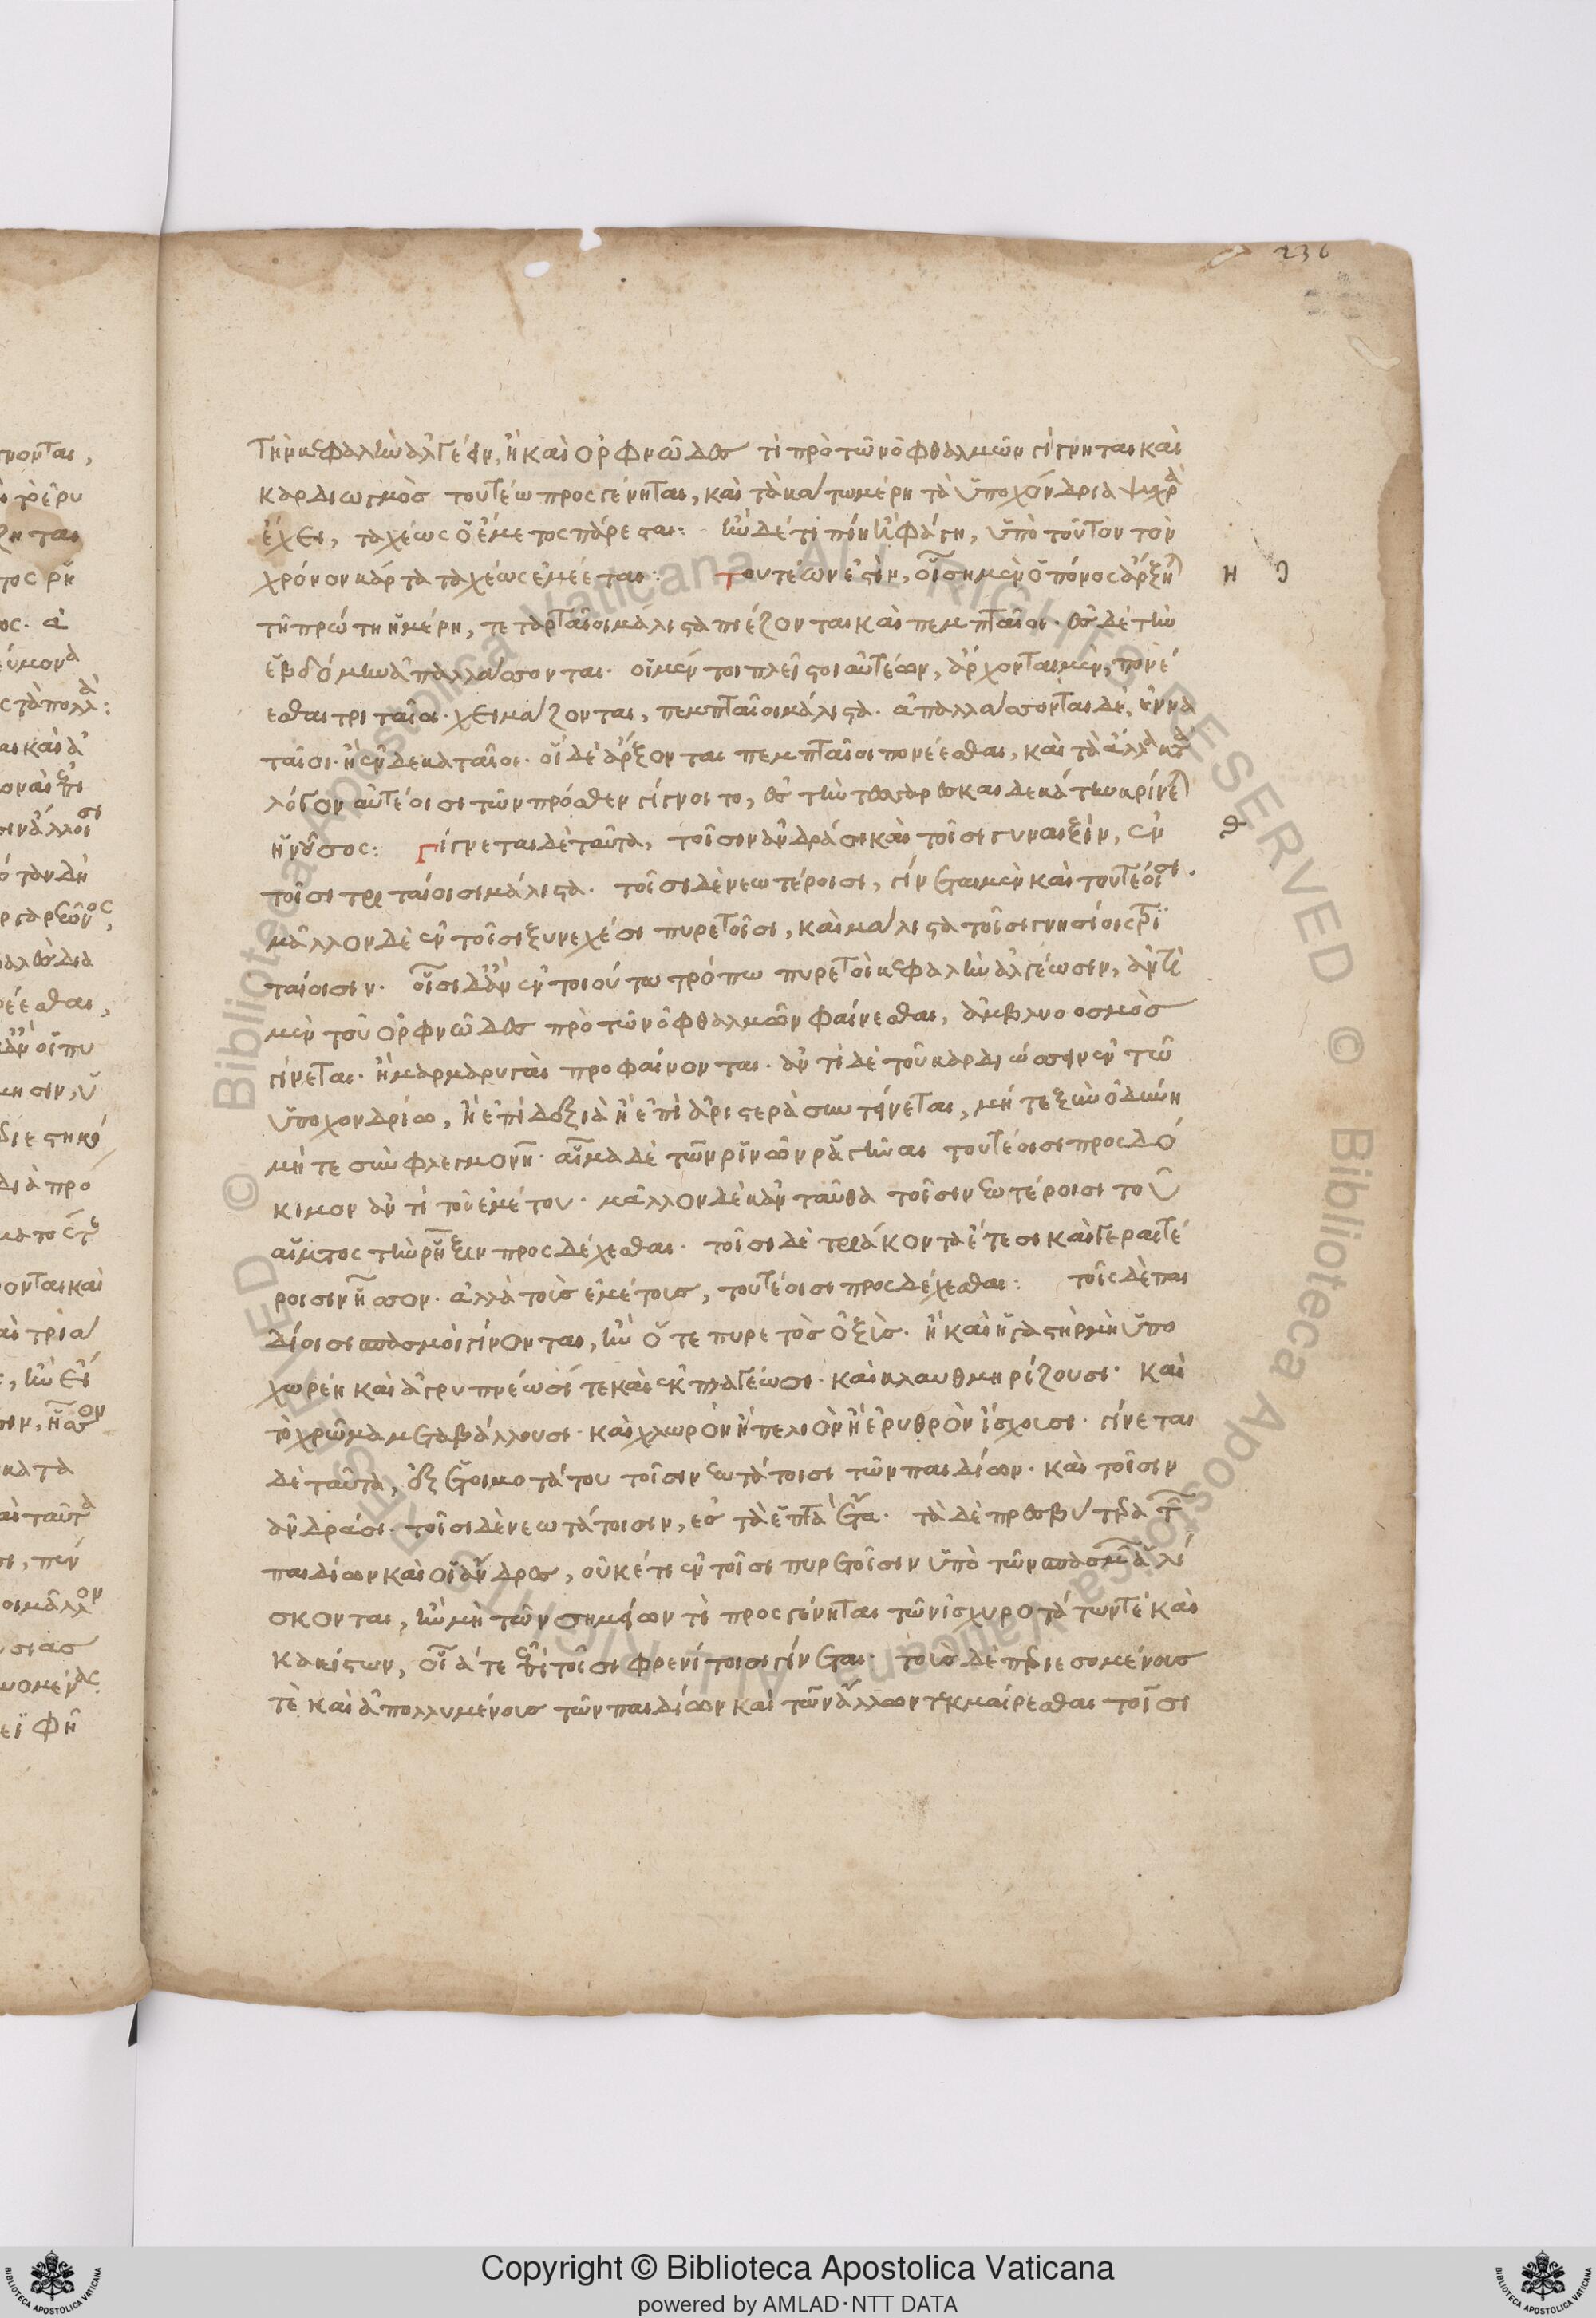 236
τὴν κεφαλὴν ἀλγέειν, ἢ καὶ ὀρφνῶδες τὶ πρὸ τῶν ὀφθαλμῶν γίγνηται καὶ
καρδιωγμὸς τουτέω προσγένηται, καὶ τὰ κατωμέρη τὰ ὑποχόνδρια ψυχρὰ
ἔχει, ταχέως ὁ ἔμετος πάρεσται: ἢν δέ τι πίῃ ἢ φάγη, ὑπὸ τοῦτον τὸν
χρόνον κάρτα ταχέως ἐμέεται: τουτέων ἐστὶν, οἷσι μὲν ὁ πόνος ἄρξηται
τῆ πρώτη ἡμέρη, τεταρταῖοι μάλιστα πιέζονται καὶ πεμπταῖοι. ἐς δὲ τὴν
ἑβδόμην ἀπαλλάσσονται. οἱ μέν τοι πλεῖστοι αὐτέων, ἄρχονται μὲν, πονέ
εσθαι τριταῖοι. χειμάζονται, πεμπταῖοι μάλιστα. ἀπαλλάσσονται δὲ, ἐννα
ταῖοι. ἢ ἑνδεκαταῖοι. οἳ δὲ ἄρξονται πεμπταῖοι πονέεσθαι, καὶ τὰ ἄλλα κατὰ
λόγον αὐτέοισι τῶν πρόσθεν γίγνοιτο, ἐς τὴν τεσσαρεσκαιδεκάτην κρίνεται
ἡ νοῦσος: γίγνεται δὲ ταῦτα, τοῖσιν ἀνδράσι καὶ τοῖσι γυναιξὶν, ἐν
τοῖσι τριταίοισι μάλιστα. τοῖσι δὲ νεωτέροισι, γίνεται μὲν καὶ τουτέοισι.
μᾶλλον δὲ ἐν τοῖσι ξυνεχέσι πυρετοῖσι, καὶ μάλιστα τοῖσι γνησίοισι τρι
ταίοισιν. οἷσι δ' ἂν ἐν τοιούτω τρόπω πυρετοὶ κεφαλὴν ἀλγέωσιν, ἀντὶ
μὲν τοῦ ὀρφνῶδες πρὸ τῶν ὀφθαλμῶν φαίνεσθαι, ἀμβλυοσμὸς
γίνεται. ἢ μαρμαρυγαὶ προφαίνονται. ἀντὶ δὲ τοῦ καρδιώσσειν ἐν τῶ
ὑποχονδρίω, ἢ ἐπὶ δεξιὰ ἢ ἐπὶ ἀριστερὰ συντείνεται, μήτε ξὺν ὀδύνη
μήτε σὺν φλεγμονῆ. αἷμα δὲ τῶν ῥινῶν ῥαγῆναι τουτέοισι προσδό
κιμον ἀντὶ τοῦ ἐμέτου. μᾶλλον δὲ κἀνταῦθα τοῖσι νεωτέροισι τοῦ
αἵματος τὴν ῥῆξιν προσδέχεσθαι. τοῖσι δὲ τριάκοντα ἔτεσι καὶ γεραιτέ
ροισιν ἧσσον. ἀλλὰ τοὺς ἐμέτους, τουτέοισι προσδέχεσθαι: τοῖς δὲ παι
δίοισι σπασμοὶ γίνονται, ἢν ὅ τε πυρετὸς ὀξὺς. ἢ καὶ ἡ γαστὴρ μὴ ὑπο
χωρέη καὶ ἀγρυπνέωσί τε καὶ ἐκπλαγέωσι. καὶ κλαυθμηρίζουσι. καὶ
τὸ χρῶμα μεταβάλλουσι. καὶ χλωρὸν ἢ πελιὸν ἢ ἐρυθρὸν ἴσχουσι. γίνεται
δὲ ταῦτα, ἐξ ἑτοιμοτάτου τοῖσι νεωτάτοισι τῶν παιδίων. καὶ τοῖσιν
ἀνδράσι. τοῖσι δὲ νεωτάτοισιν, ἐς τὰ ἑπτὰ ἔτεα. τὰ δὲ πρεσβύτερα τῶν
παιδίων καὶ οἱ ἄνδρες, οὐκέτι ἐν τοῖσι πυρετοῖσιν ὑπὸ τῶν σπασμῶν ἁλί
σκονται, ἢν μὴ τῶν σημείων τὶ προσγένηται τῶν ἰσχυροτάτων τὲ καὶ
κακίστων, οἷά τε ἐπὶ τοῖσι φρενίτοισι γίνεται. τοὺς δὲ περιεσομένους
τὲ καὶ ἀπολλυμένους τῶν παιδίων καὶ τῶν ἄλλων τεκμαίρεσθαι τοῖσι
Copyright © Biblioteca Apostolica Vaticana
powered by AMLAD·NTT DATA